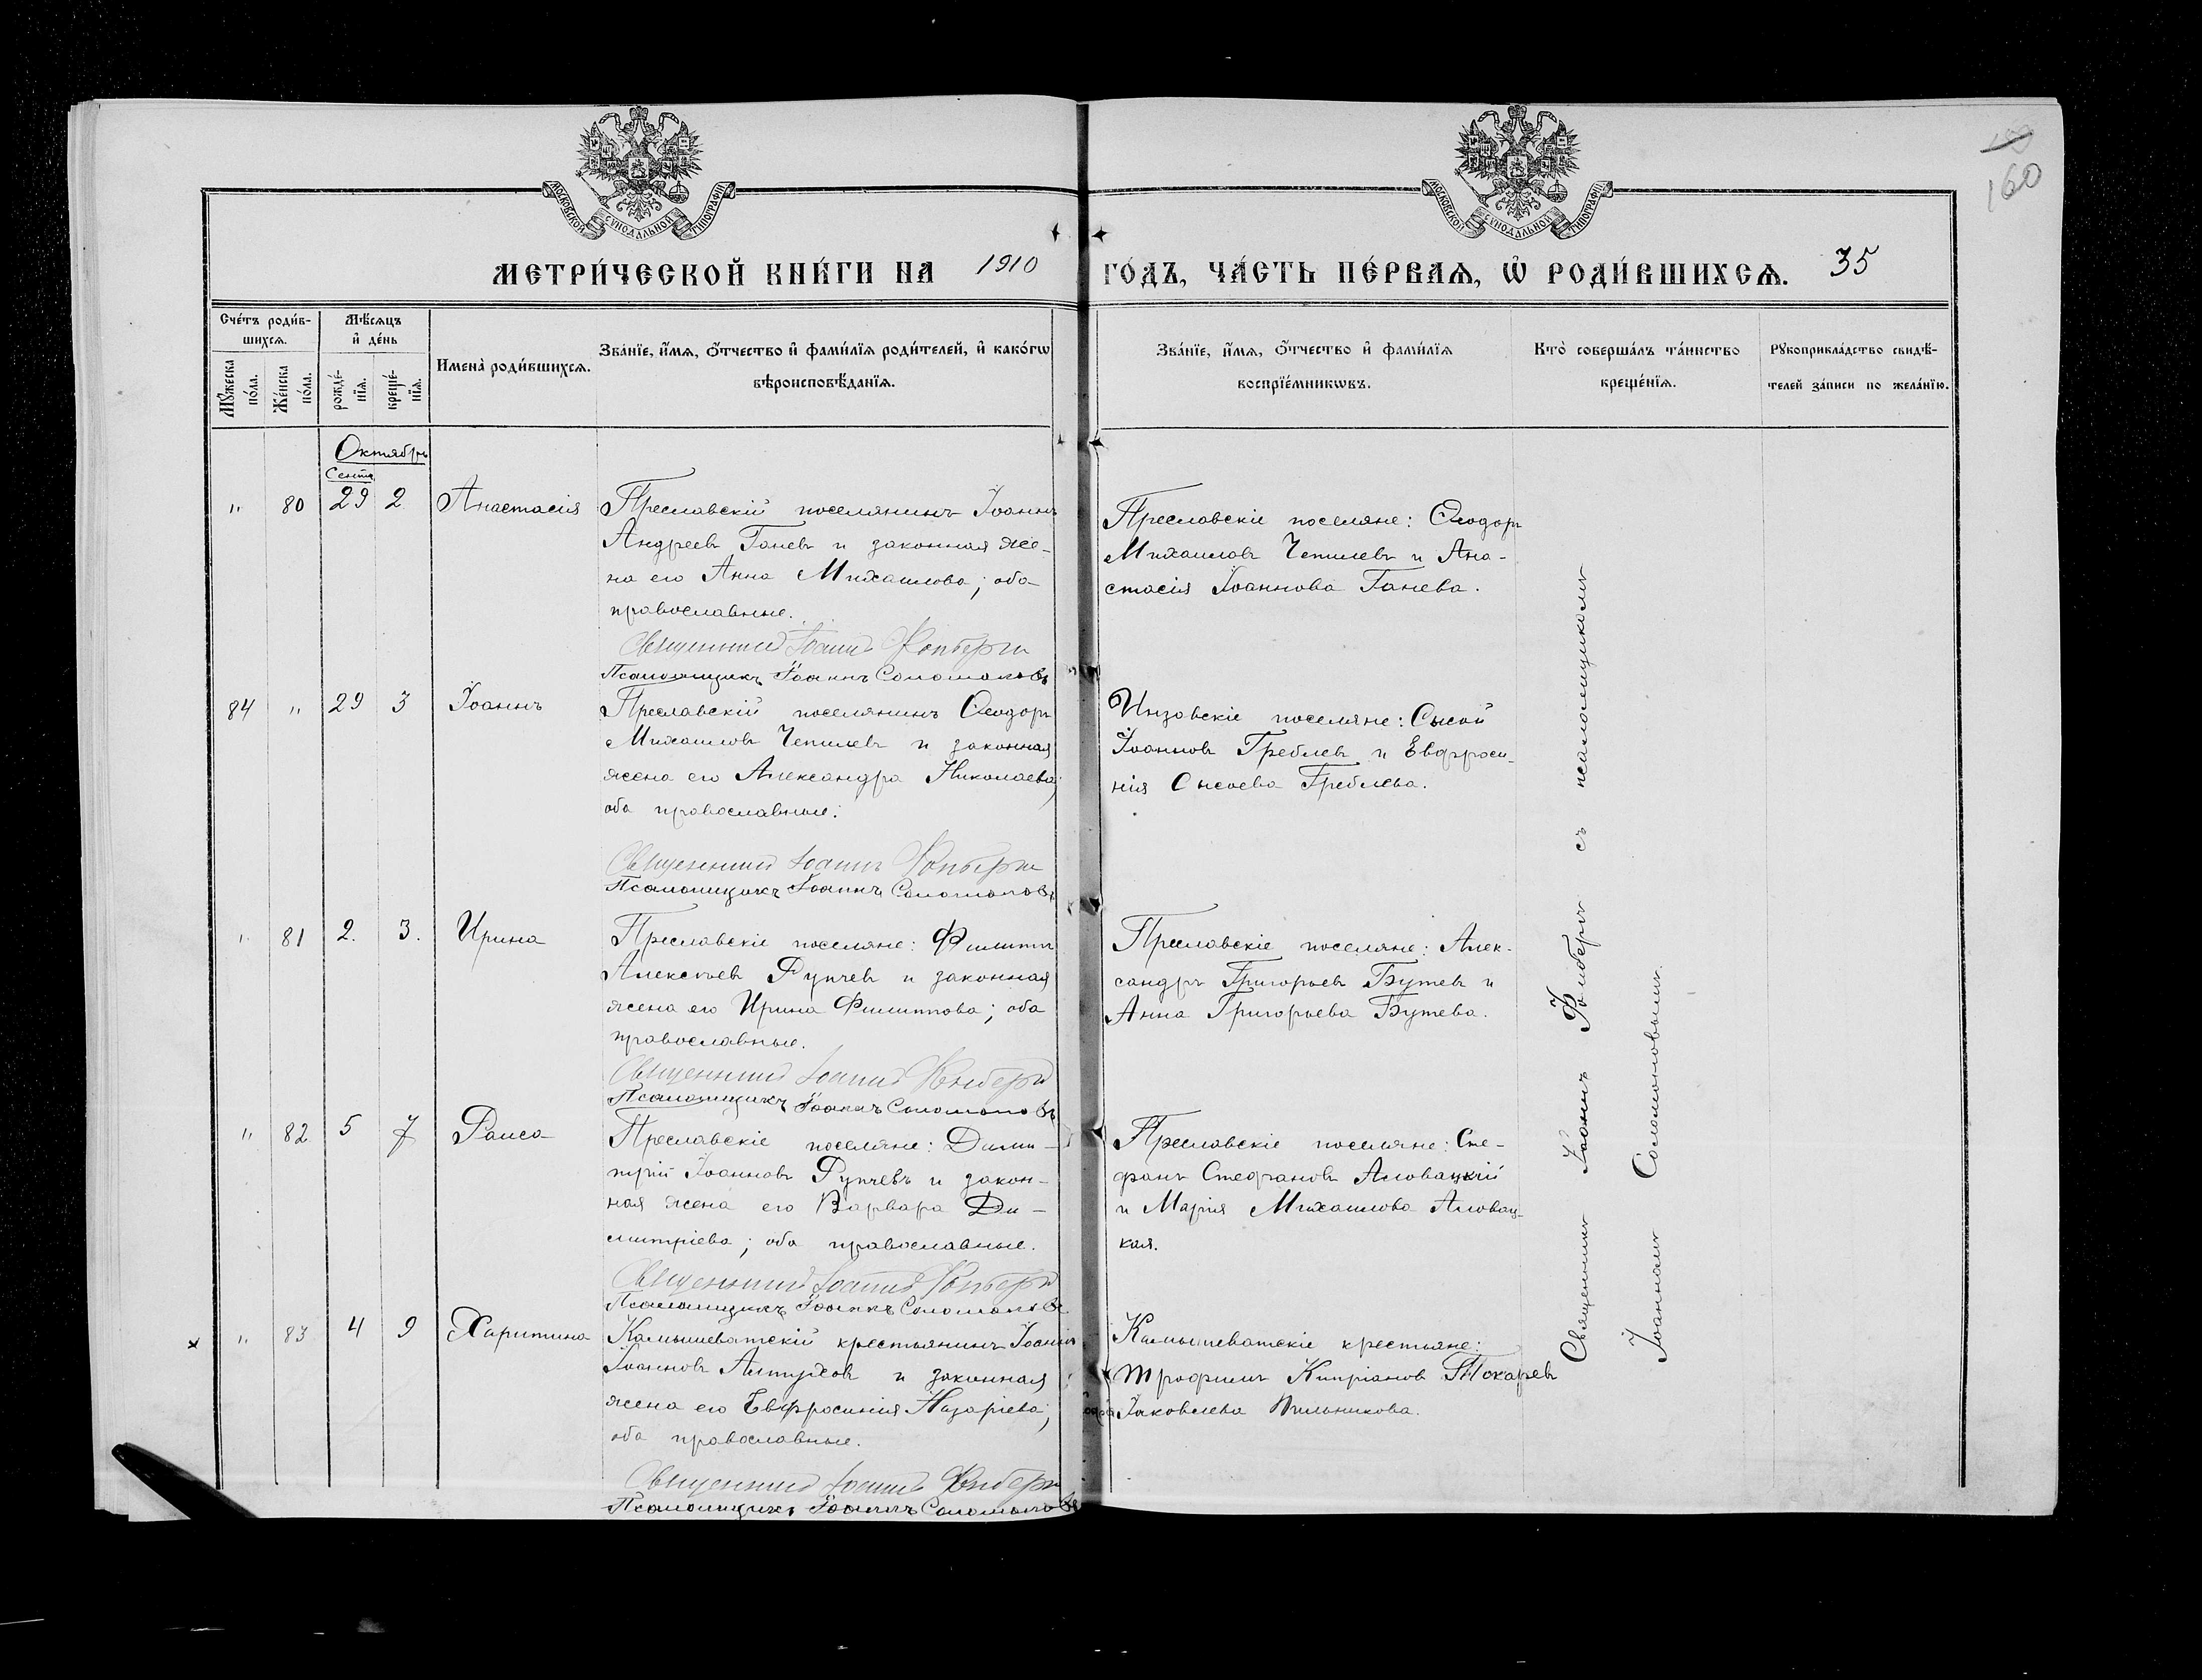 МОСКОВСКОЙ СУНОДАЛЬНОЙ ТИПОГРАФІИ
МОСКОВСКОЙ СУНОДАЛЬНОЙ ТИПОГРАФІИ
160
МЕТРИ́ЧЕСКОЙ КНИ́ГИ НА 1910 ГО́ДЪ, ЧА́СТЬ ПЕ́РВАѦ, Ѡ҆ РОДИ́ВШИХСѦ. 35
Сче́тъ роди́в-
шихсѧ.
Мꙋ́жеска по́ла.
Же́нска по́ла.
Мѣ́сѧцъ
и҆ де́нь
рожде́-
нїѧ.
креще́-
нїѧ.
Имена̀ роди́вшихсѧ.
Зва́нїе, и҆́мѧ, ѻ҆́тчество и҆ фами́лїѧ роди́телей, и҆ како́гѡ
вѣроисповѣ́данїѧ.
Зва́нїе, и҆́мѧ, ѻ҆́тчество и҆ фами́лїѧ
воспрїе́мникѡвъ.
Кто̀ соверша́лъ та́инство
креще́нїѧ.
Рꙋкоприкла́дство свидѣ́-
телей за́писи по жела́нїю.
Октябрь
Сентя
" 80 29 2 Анастасія
Преславскій поселянинъ Іоаннъ
Андреевъ Ганевъ и законная же-
на его Анна Михаилова; оба
православные.
Священникъ Іоаннъ Фомбергъ
Псаломщикъ Іоаннъ Соломоновъ
Преславскіе поселяне: Ѳеодоръ
Михаиловъ Чепилевъ и Ана-
стасія Іоаннова Ганева.
84 " 29 3 Іоаннъ
Преславскій поселянинъ Ѳеодоръ
Михаиловъ Чепилевъ и законная
жена его Александра Николаева;
оба православные.
Священникъ Іоаннъ Фомбергъ
Псаломщикъ Іоаннъ Соломоновъ
Инзовскіе поселяне: Сысой
Іоанновъ Греблевъ и Евфроси-
нія Сысоева Греблева.
" 81 2. 3. Ирина
Преславскіе поселяне: Филиппъ
Алексѣевъ Рупчевъ и законная
жена его Ирина Филиппова; оба
православные.
Священникъ Іоаннъ Фомбергъ
Псаломщикъ Іоаннъ Соломоновъ
Преславскіе поселяне: Алек-
сандръ Григорьевъ Бутевъ и
Анна Григорьева Бутева.
" 82 5 7 Раиса
Преславскіе поселяне: Дими-
трій Іоанновъ Рупчевъ и закон-
ная жена его Варвара Ди-
митріева; оба православные.
Священникъ Іоаннъ Фомбергъ
Псаломщикъ Іоаннъ Соломоновъ
Преславскіе поселяне: Сте-
фанъ Стефановъ Аловацкій
и Марія Михаилова Аловац-
кая.
x " 83 4 9 Харитина
Камышеватскій крестьянинъ Іоаннъ
Іоанновъ Алтуховъ и законная
жена его Евфросинія Назаріева;
оба православные.
Священникъ Іоаннъ Фомбергъ
Псаломщикъ Іоаннъ Соломоновъ
Камышеватскіе крестьяне:
Трофимъ Кипріановъ Токаревъ
Іаковлева Пильникова.
Священникъ Іоаннъ Фомбергъ съ псаломщикомъ
Іоанномъ Соломоновымъ.